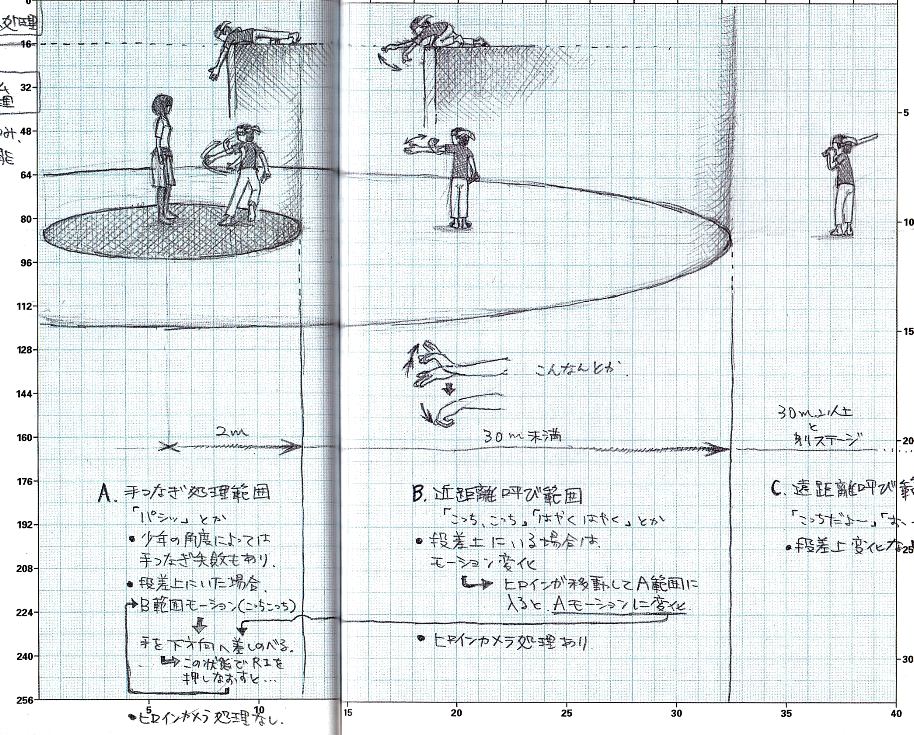 処理
理
のみ、
能
0
16
32
48
64
80
96
112
128
144
160
176
192
208
224
240
256
5
10
15
20
25
30
5
10
15
20
25
30
35
40
こんなんとか.
2m
30m未満
30m以上
と
別ステージ
A. 手つなぎ処理範囲
「パシッ」とか
• 少年の角度によっては
手つなぎ失敗もあり.
• 段差上にいた場合.
B範囲モーション(こっちこっち)
手を下方向へ差しのべる.
この状態でR1を
押しなおすと…
• ヒロインカメラ処理なし.
B. 近距離呼び範囲
「こっち、こっち」「はやくはやく」とか
• 段差上にいる場合は.
モーション変化
ヒロインが移動してA範囲に
入ると、Aモーションに変化.
• ヒロインカメラ処理あり.
C. 遠距離呼び範
「こっちだよ〜」「お
• 段差上変化な